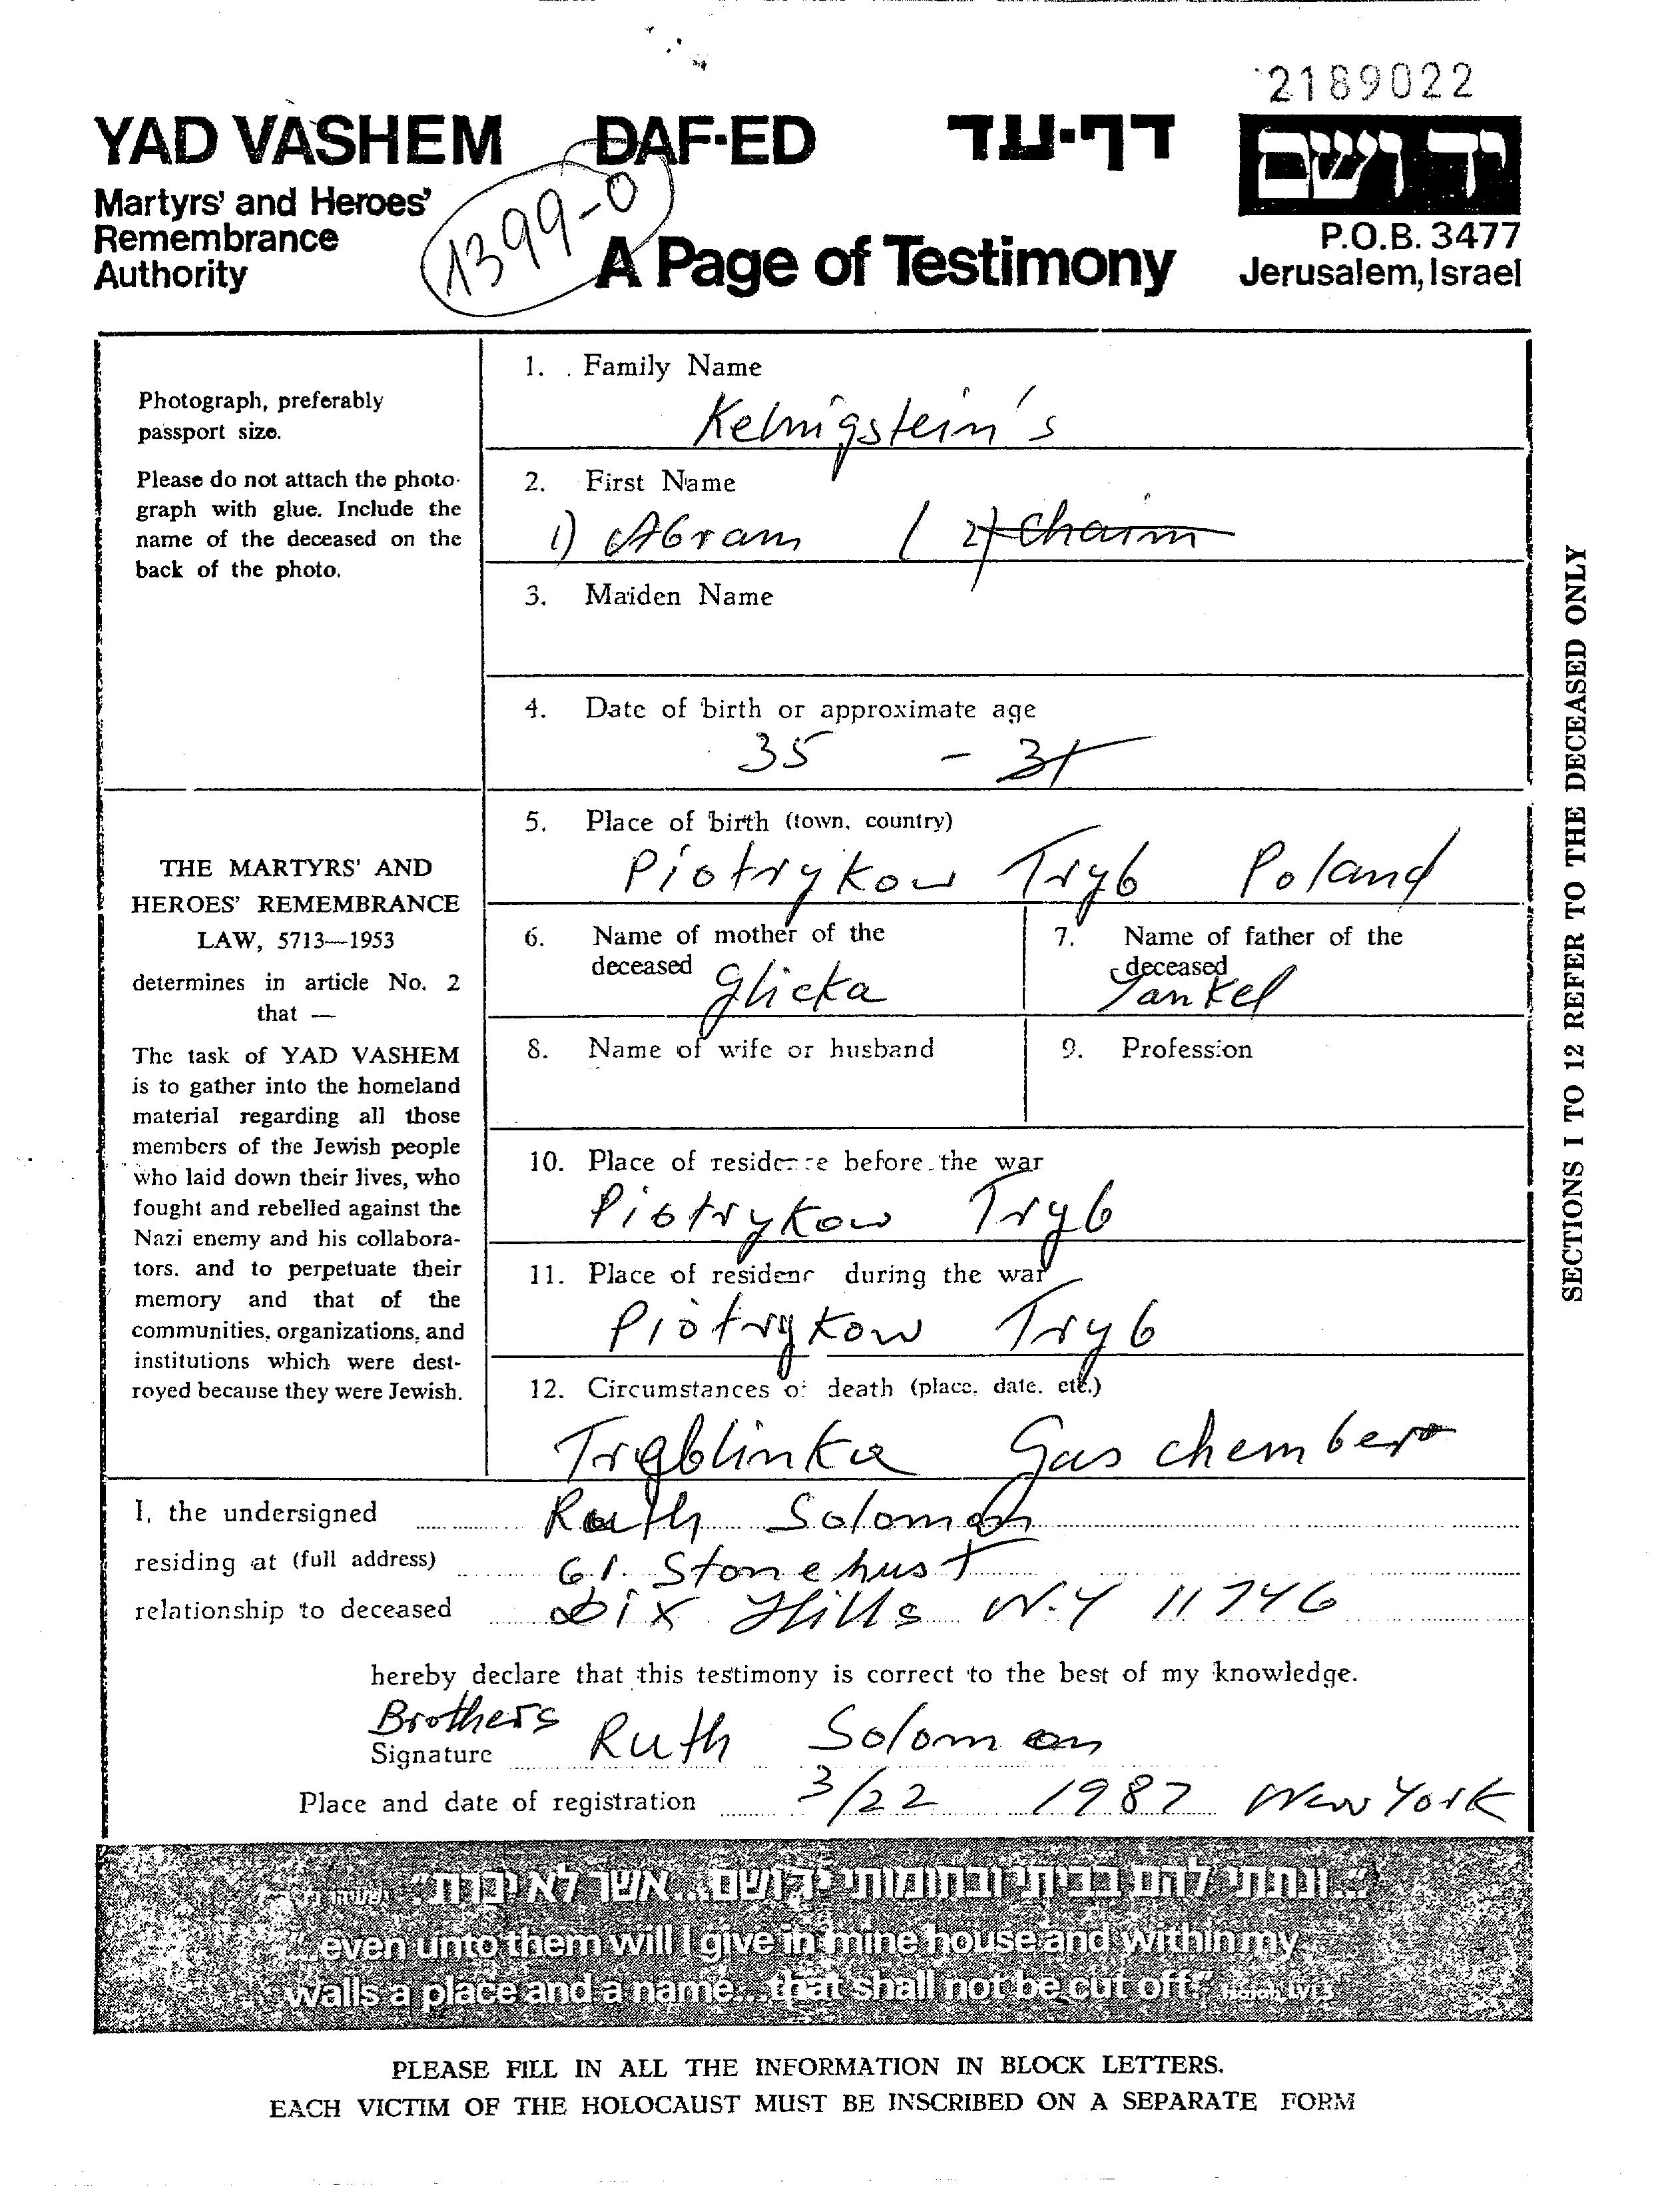 2189022
YAD VASHEM DAF-ED דף-עד ידושם
Martyrs' and Heroes'
Remembrance
Authority
1399-0
A Page of Testimony
P.O.B. 3477
Jerusalem, Israel
Photograph, preferably
passport size.
Please do not attach the photo-
graph with glue. Include the
name of the deceased on the
back of the photo.
THE MARTYRS' AND
HEROES' REMEMBRANCE
LAW, 5713—1953
determines in article No. 2
that —
The task of YAD VASHEM
is to gather into the homeland
material regarding all those
members of the Jewish people
who laid down their lives, who
fought and rebelled against the
Nazi enemy and his collabora-
tors, and to perpetuate their
memory and that of the
communities, organizations, and
institutions which were dest-
royed because they were Jewish.
1. Family Name
Kelnigstein's
2. First Name
1) Abram / 2) Chaim
3. Maiden Name
4. Date of birth or approximate age
35 - 31
5. Place of birth (town, country)
Piotrykow Tryb Poland
6. Name of mother of the
deceased Glicka
7. Name of father of the
deceased
Yankel
8. Name of wife or husband
9. Profession
10. Place of residence before the war
Piotrykow Tryb
11. Place of residenc during the war
Piotrykow Tryb
12. Circumstances of death (place, date, etc.)
Treblinka Gas chember
SECTIONS 1 TO 12 REFER TO THE DECEASED ONLY
I, the undersigned Ruth Solomon
residing at (full address) 61. Stonehust
relationship to deceased Dix Hills N.Y 11746
hereby declare that this testimony is correct to the best of my knowledge.
Brothers
Signature Ruth Solomon
Place and date of registration 3/22 1987 New York
"...ונתתי להם בביתי ובחומותי יד ושם...אשר לא יכרת"
"...even unto them will I give in mine house and within my
walls a place and a name...that shall not be cut off." Isaiah, LVI,5
PLEASE FILL IN ALL THE INFORMATION IN BLOCK LETTERS.
EACH VICTIM OF THE HOLOCAUST MUST BE INSCRIBED ON A SEPARATE FORM